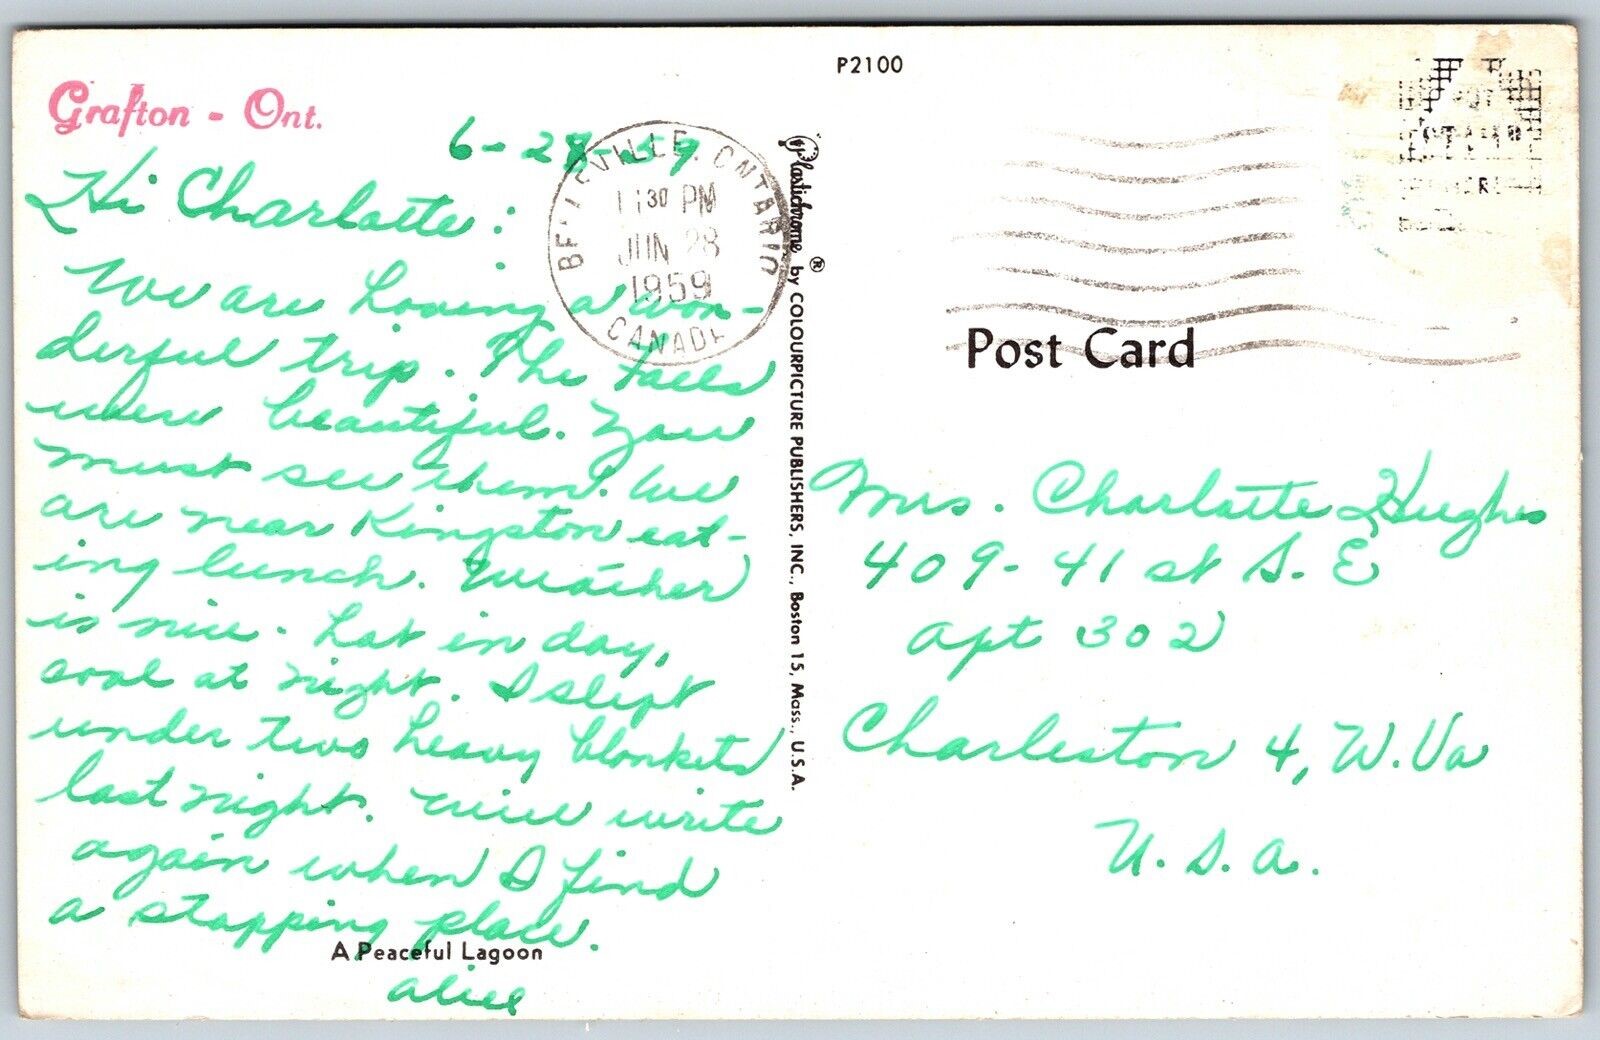 P2100
Grafton - Ont.
6-28-59
Hi Charlotte:
We are having a won-
derful trip. The Falls
were beautiful. You
must see them. We
are near Kingston eat-
ing lunch. Weather
is nice. Hot in day,
cool at night. I slept
under two heavy blankets
last night. Will write
again when I find
a stopping place.
A Peaceful Lagoon
Alice
BELLEVILLE, ONTARIO
11 30 PM
JUN 28
1959
CANADA
Plastichrome ® by COLOURPICTURE PUBLISHERS, INC., Boston 15, Mass., U.S.A.
Post Card
Mrs. Charlotte Hughes
409-41 st S. E
Apt 302
Charleston 4, W. Va
U. S. A.